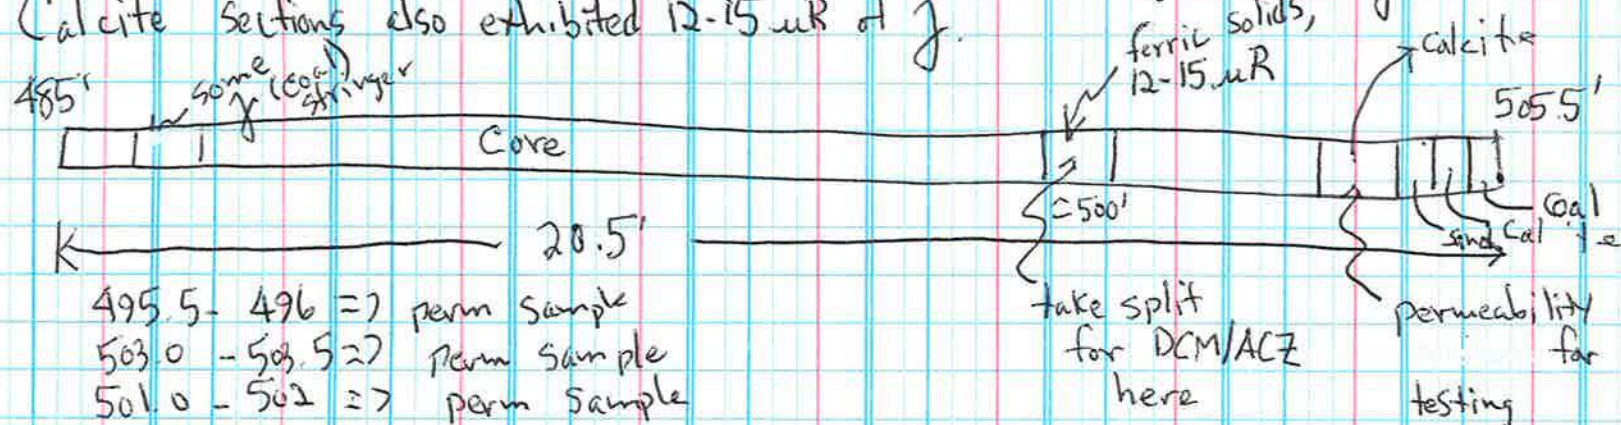 Calcite sections also exhibited 12-15 uR of γ.
ferric solids,
12-15 uR
Calcite
485'
some
γ (coal)
stringer
505.5'
Core
≈500'
Coal
Sand
Cal
20.5'
495.5 - 496 => perm sample
503.0 - 503.5 => perm sample
501.0 - 502 => perm sample
take split
for DCM/ACZ
here
permeability
for
testing